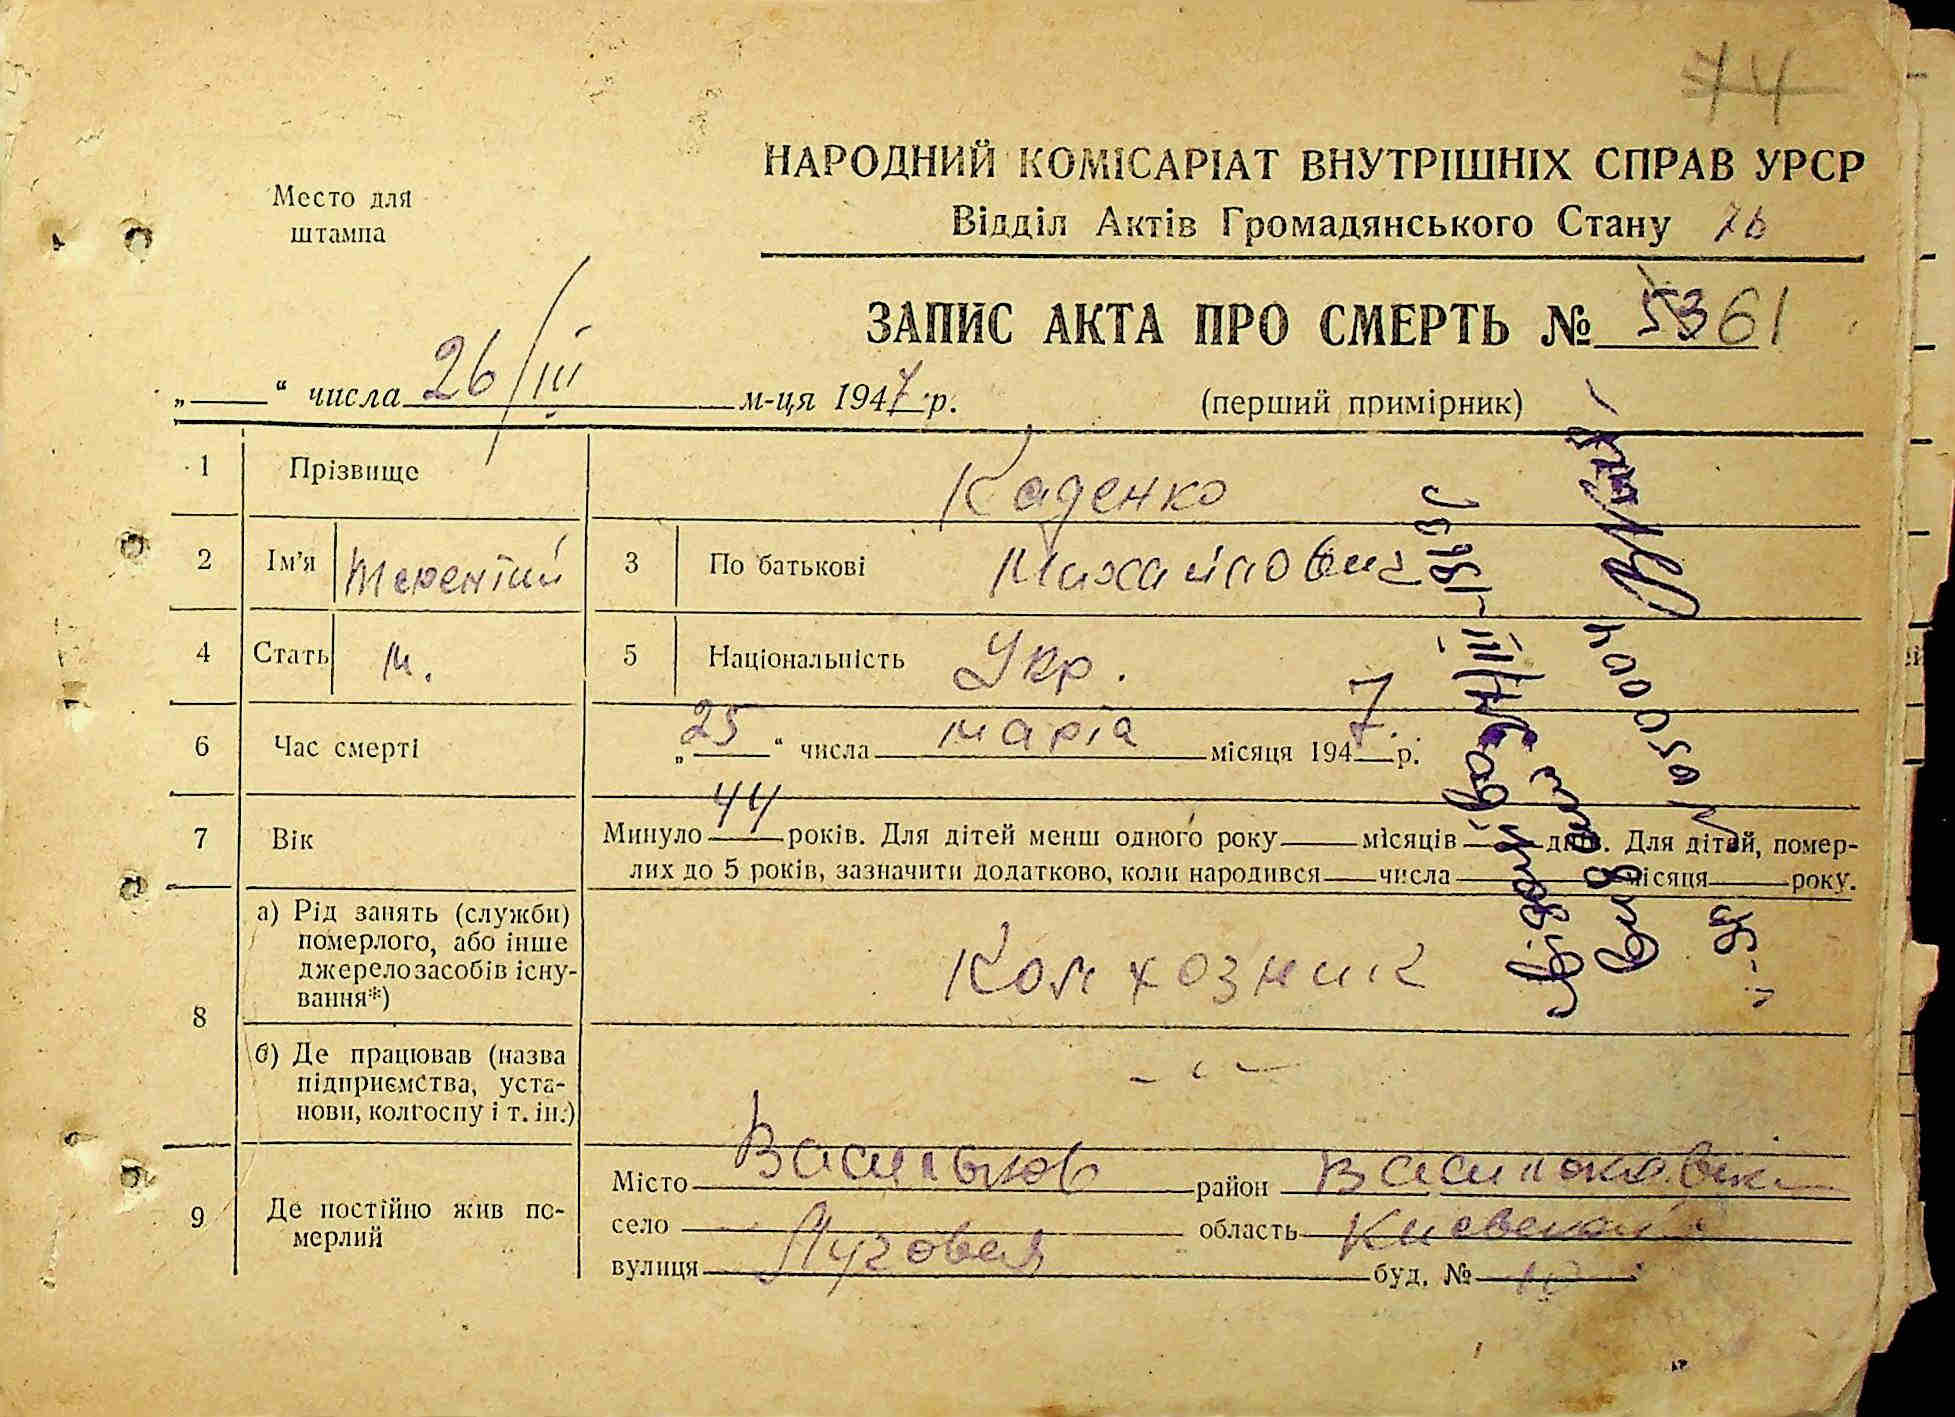 74
НАРОДНИЙ КОМІСАРІАТ ВНУТРІШНІХ СПРАВ УРСР
Место для
штампа
Відділ Актів Громадянського Стану 76
ЗАПИС АКТА ПРО СМЕРТЬ № 5361
„ “ числа 26/III м-ця 1947 р. (перший примірник)
1 Прізвище Каденко
2 Ім’я Терентий 3 По батькові Михайлович
4 Стать м. 5 Національність Укр.
6 Час смерті „25“ числа марта місяця 1947 р.
7 Вік Минуло 44 років. Для дітей менш одного року місяців днів. Для дітей, помер-
лих до 5 років, зазначити додатково, коли народився числа місяця року.
8 а) Рід занять (служби)
померлого, або інше
джерело засобів існу-
вання*)
Колхозник
б) Де працював (назва
підприємства, уста-
нови, колгоспу і т. ін.)
9 Де постійно жив по-
мерлий
Місто Васильков район Васильковский
село область Киевская
вулиця Луговая буд. №